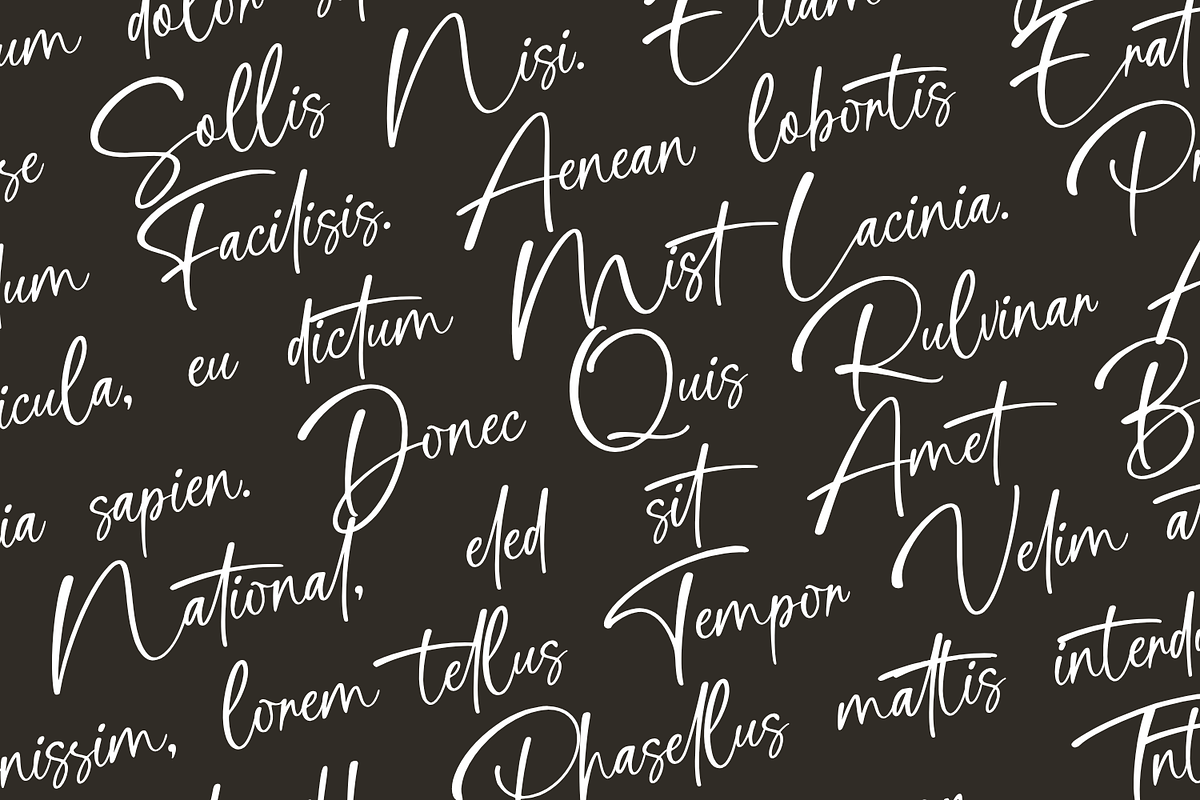 um dolor
se Sollis Nisi. Etiam
lum Facilisis. Aenean lobortis Erat
icula, eu dictum Mist Lacinia. Pr
ia sapien. Donec Quis Rulvinar A
National, eled sit Amet B
nissim, lorem tellus Tempor Velim
Phasellus mattis interd
Int